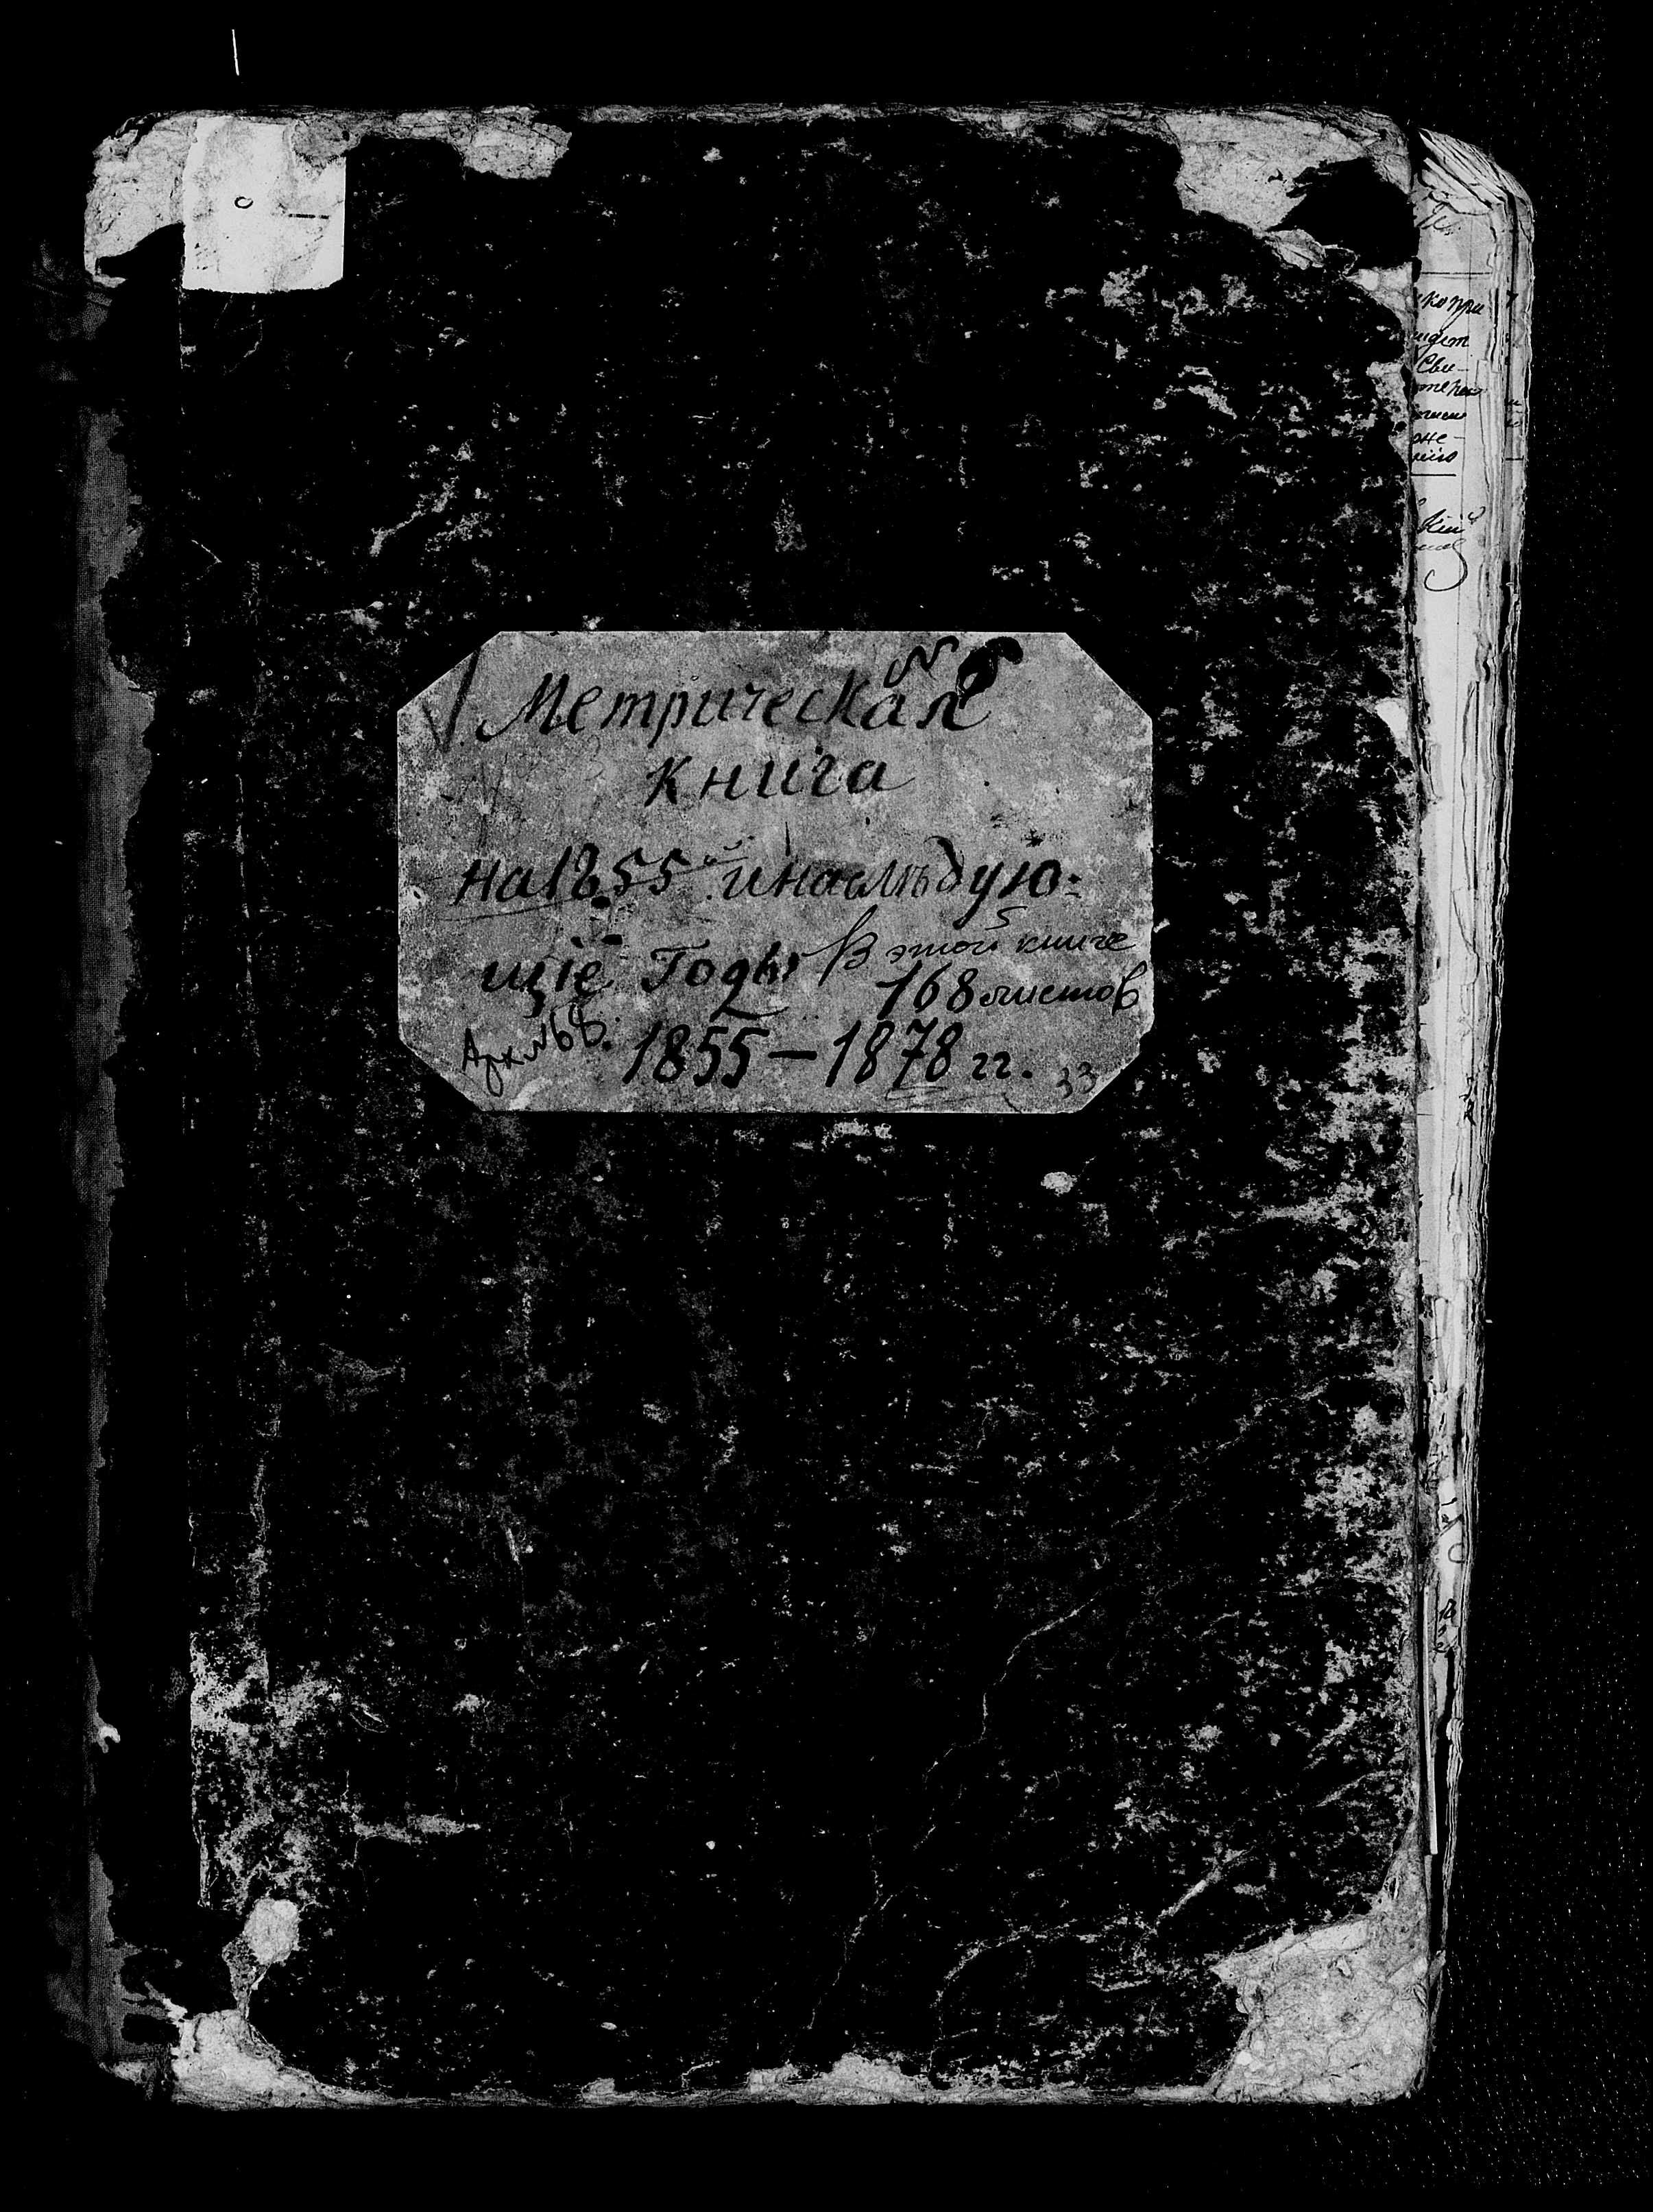 Метрическая
книга
на 1855й и наслѣдую-
щіе Годы
В этой книге
168 листов
Арх №68.
1855 – 1878 гг.
33